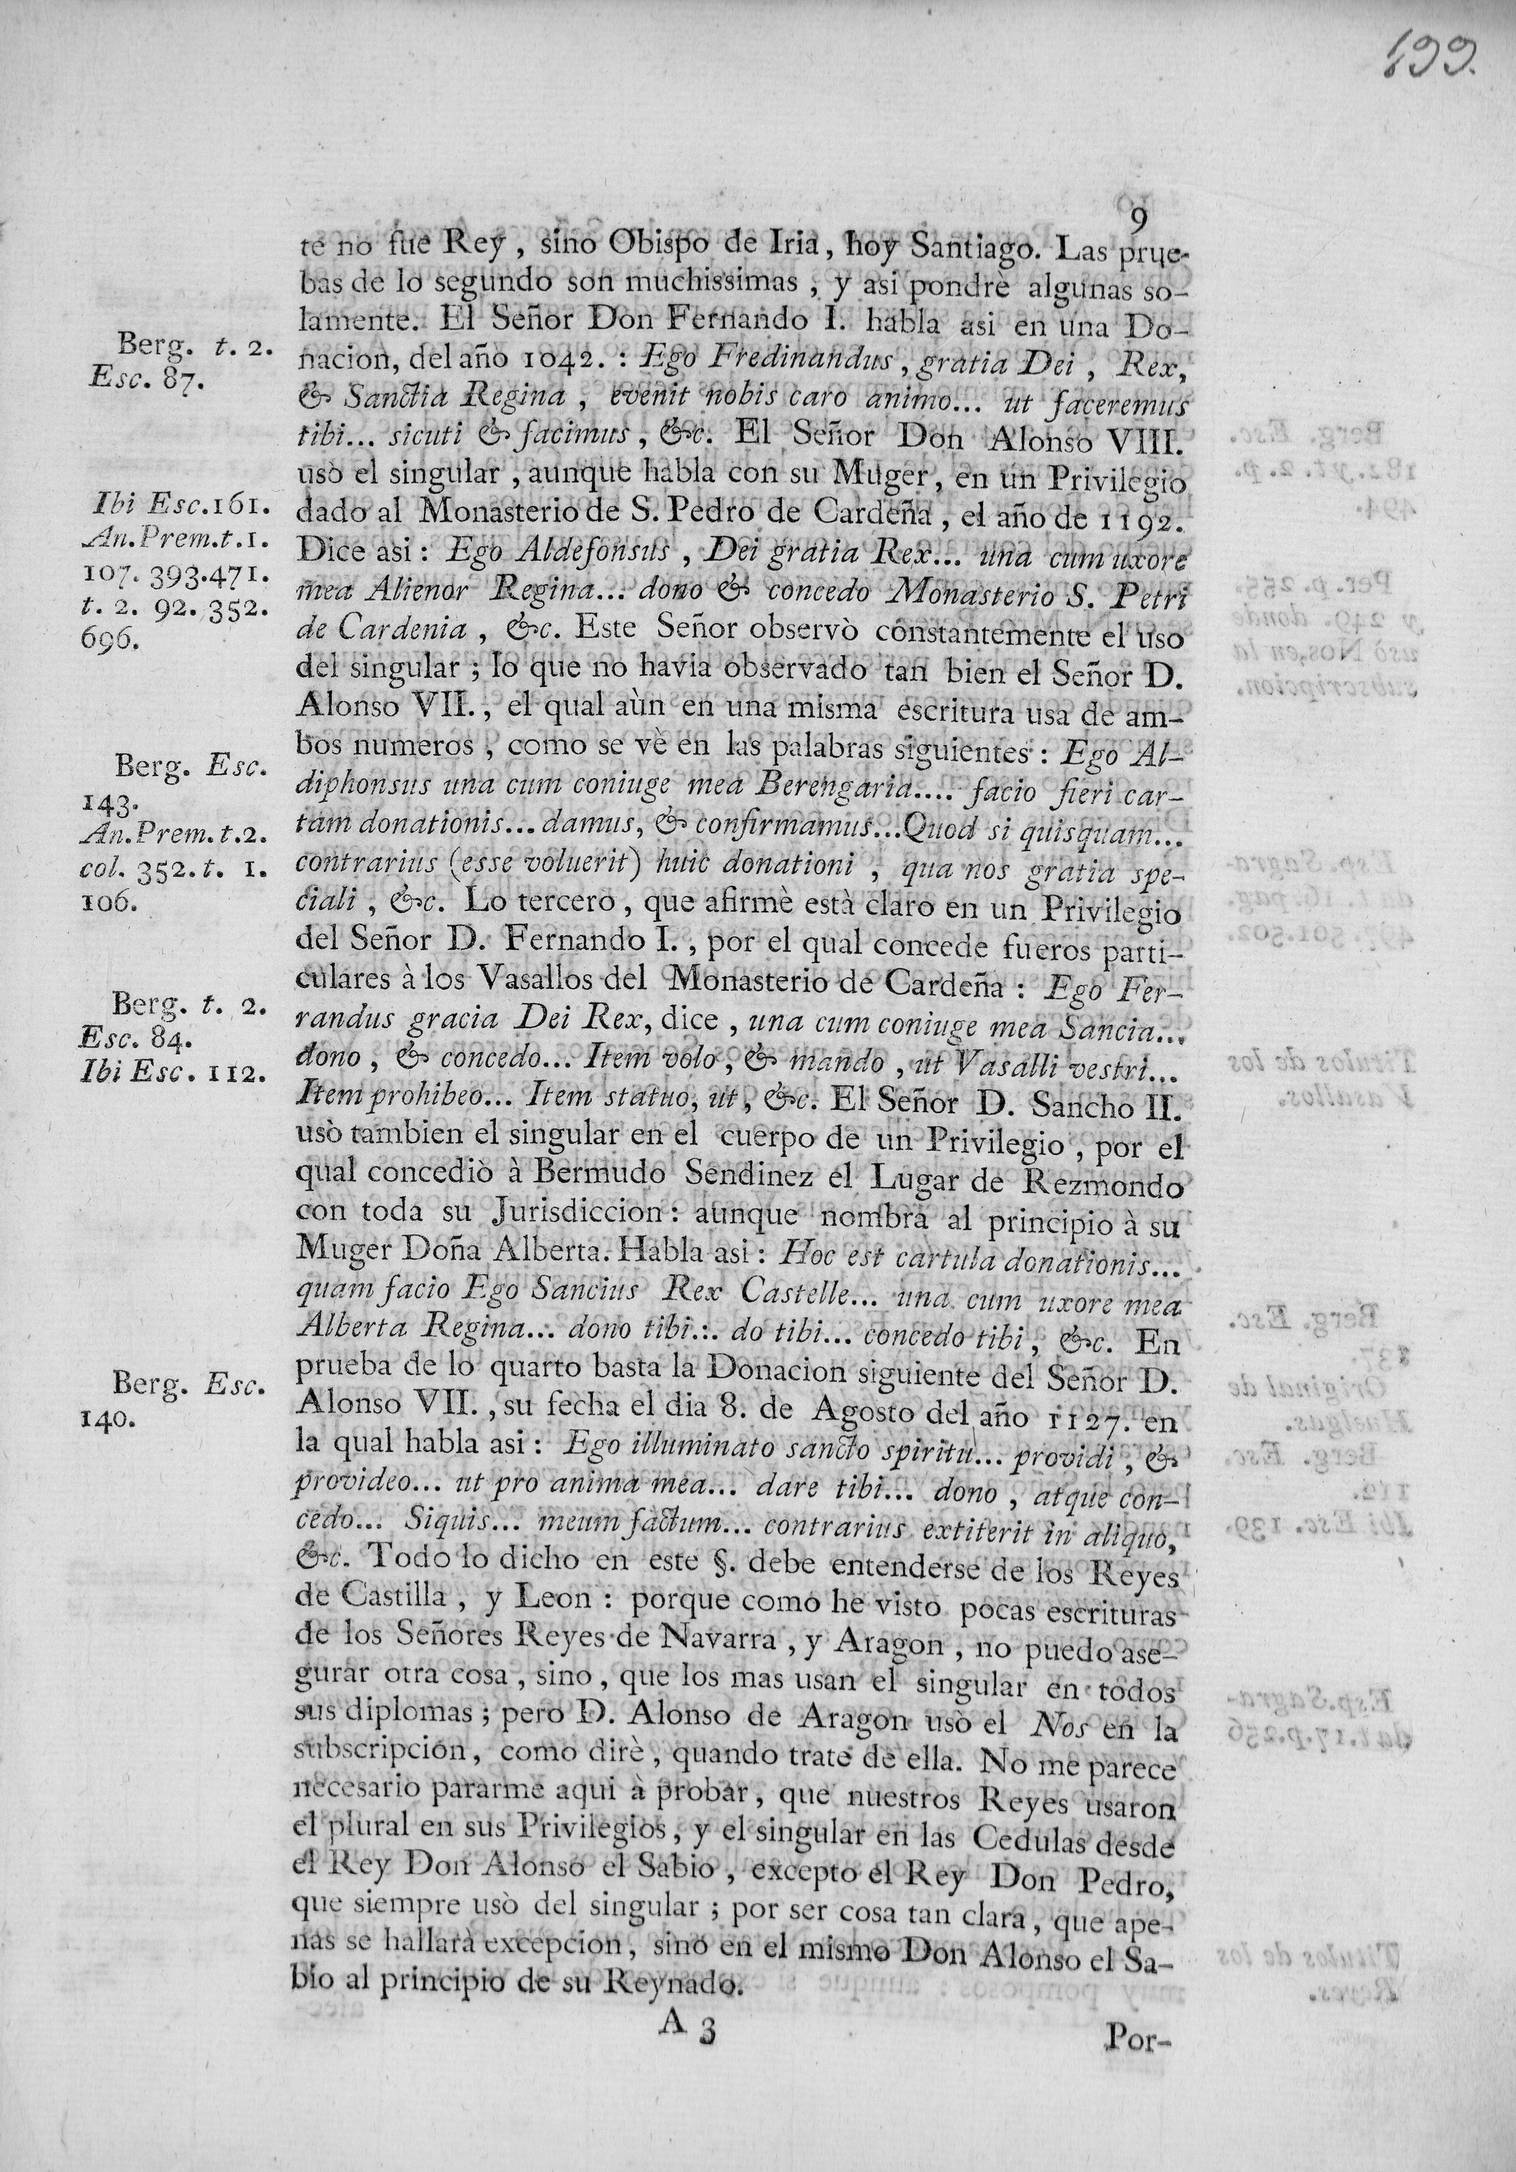 199.
9
te no fue Rey, sino Obispo de Iria, hoy Santiago. Las prue-
bas de lo segundo son muchissimas, y asi pondrè algunas so-
lamente. El Señor Don Fernando I. habla asi en una Do-
nacion, del año 1042. : Ego Fredinandus, gratia Dei, Rex,
& Sanctia Regina, evenit nobis caro animo... ut faceremus
tibi... sicuti & facimus, &c. El Señor Don Alonso VIII.
usò el singular, aunque habla con su Muger, en un Privilegio
dado al Monasterio de S. Pedro de Cardeña, el año de 1192.
Dice asi: Ego Aldefonsus, Dei gratia Rex... una cum uxore
mea Alienor Regina... dono & concedo Monasterio S. Petri
de Cardenia, &c. Este Señor observò constantemente el uso
del singular; lo que no havia observado tan bien el Señor D.
Alonso VII., el qual aùn en una misma escritura usa de am-
bos numeros, como se vè en las palabras siguientes: Ego Al-
diphonsus una cum coniuge mea Berengaria.... facio fieri car-
tam donationis... damus, & confirmamus...Quod si quisquam...
contrarius (esse voluerit) huic donationi, qua nos gratia spe-
ciali, &c. Lo tercero, que afirmè està claro en un Privilegio
del Señor D. Fernando I., por el qual concede fueros parti-
culares à los Vasallos del Monasterio de Cardeña: Ego Fer-
randus gracia Dei Rex, dice, una cum coniuge mea Sancia...
dono, & concedo... Item volo, & mando, ut Vasalli vestri...
Item prohibeo... Item statuo, ut, &c. El Señor D. Sancho II.
usò tambien el singular en el cuerpo de un Privilegio, por el
qual concediò à Bermudo Sendinez el Lugar de Rezmondo
con toda su Jurisdiccion: aunque nombra al principio à su
Muger Doña Alberta. Habla asi: Hoc est cartula donationis...
quam facio Ego Sancius Rex Castelle... una cum uxore mea
Alberta Regina... dono tibi... do tibi... concedo tibi, &c. En
prueba de lo quarto basta la Donacion siguiente del Señor D.
Alonso VII., su fecha el dia 8. de Agosto del año 1127. en
la qual habla asi: Ego illuminato sancto spiritu... providi, &
provideo... ut pro anima mea... dare tibi... dono, atque con-
cedo... Siquis... meum factum... contrarius extiterit in aliquo,
&c. Todo lo dicho en este §. debe entenderse de los Reyes
de Castilla, y Leon: porque como he visto pocas escrituras
de los Señores Reyes de Navarra, y Aragon, no puedo ase-
gurar otra cosa, sino, que los mas usan el singular en todos
sus diplomas; pero D. Alonso de Aragon usò el Nos en la
subscripcion, como dirè, quando trate de ella. No me parece
necesario pararme aqui à probar, que nuestros Reyes usaron
el plural en sus Privilegios, y el singular en las Cedulas desde
el Rey Don Alonso el Sabio, excepto el Rey Don Pedro,
que siempre usò del singular; por ser cosa tan clara, que ape-
nas se hallarà excepcion, sino en el mismo Don Alonso el Sa-
bio al principio de su Reynado.
A 3
Por-
Berg. t. 2.
Esc. 87.
Ibi Esc.161.
An.Prem.t.1.
107. 393.471.
t. 2. 92. 352.
696.
Berg. Esc.
143.
An.Prem.t.2.
col. 352.t. 1.
106.
Berg. t. 2.
Esc. 84.
Ibi Esc. 112.
Berg. Esc.
140.